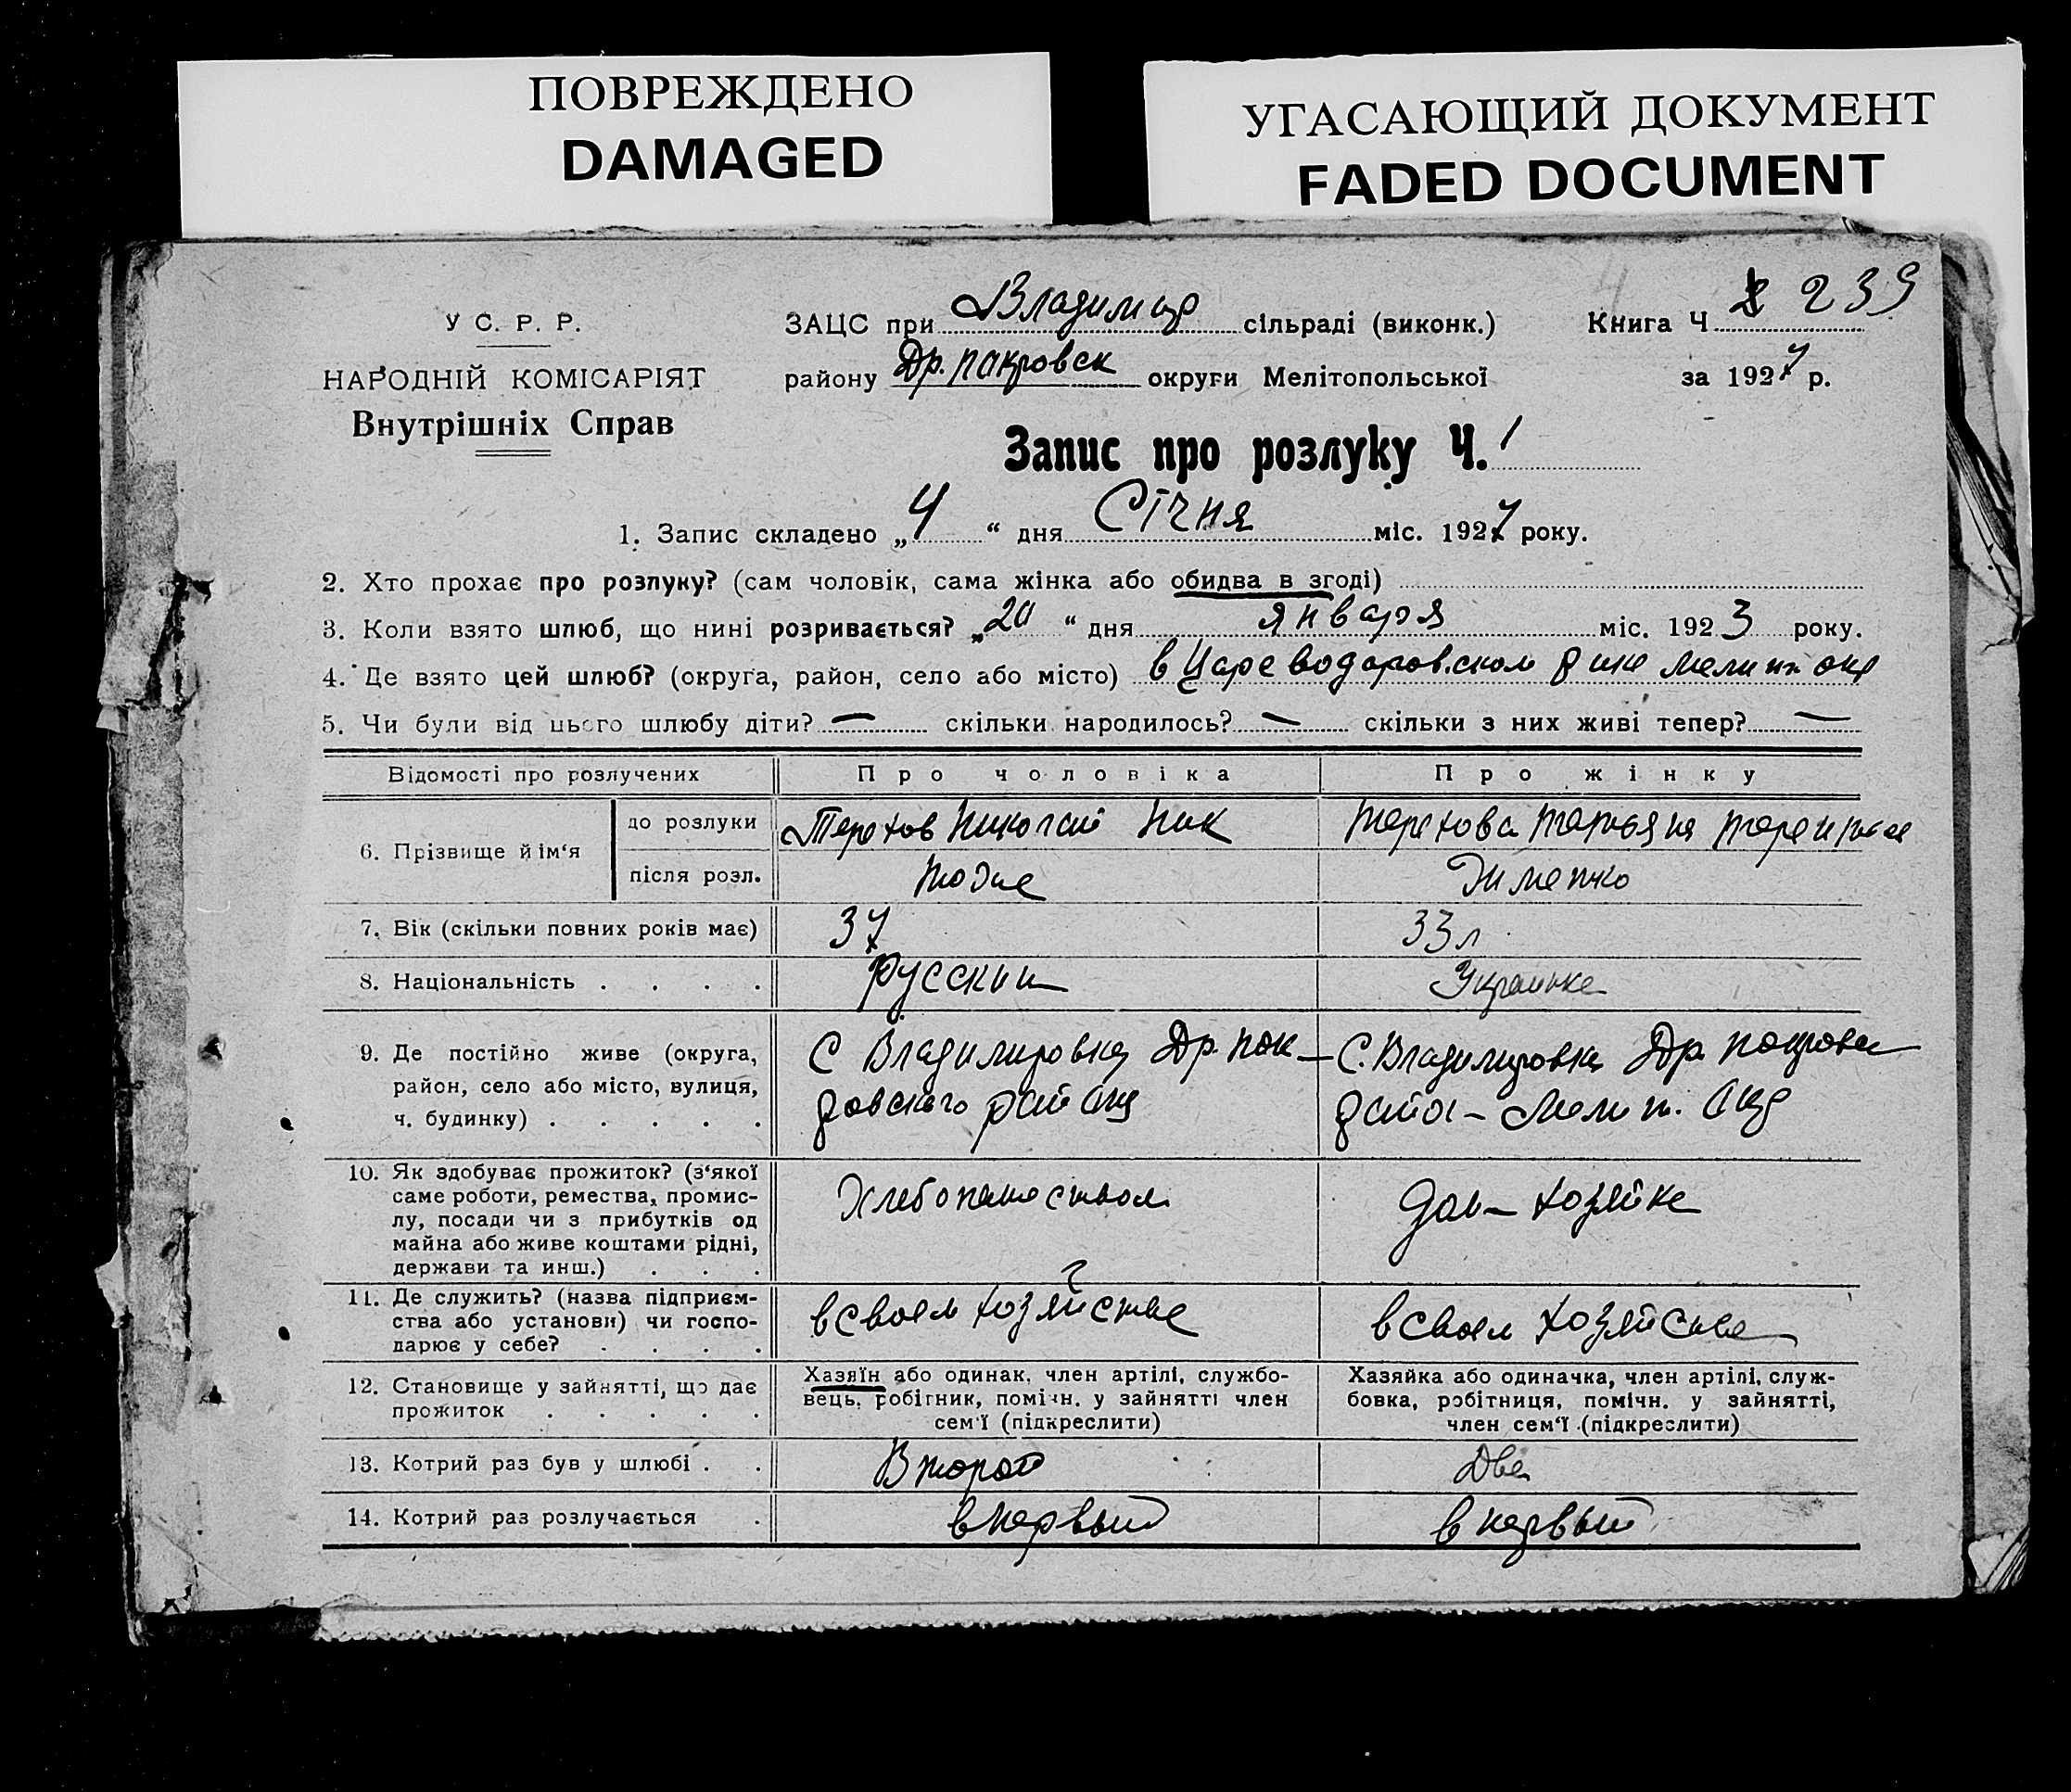 ПОВРЕЖДЕНО
DAMAGED
УГАСАЮЩИЙ ДОКУМЕНТ
FADED DOCUMENT
У С. Р. Р.
НАРОДНІЙ КОМІСАРІЯТ
Внутрішніх Справ
ЗАЦС при Владимир сільраді (виконк.)
району Др. покровск округи Мелітопольської
Книга Ч 239
за 1927 р.
Запис про розлуку Ч. 1
1. Запис складено „4“ дня Січня міс. 1927 року.
2. Хто прохає про розлуку? (сам чоловік, сама жінка або обидва в згоді)
3. Коли взято шлюб, що нині розривається? „20“ дня января міс. 1923 року.
4. Де взято цей шлюб? (округа, район, село або місто) в
5. Чи були від цього шлюбу діти? — скільки народилось? — скільки з них живі тепер? —
Відомості про розлучених Про чоловіка Про жінку
6. Прізвище й ім‘я до розлуки Терехов Николай Ник Терехова Татьяна
після розл. тоже
7. Вік (скільки повних років має) 37 33 л
8. Національність . . . . Русский Украинка
9. Де постійно живе (округа, С Владимировка Др. Пок- С. Владимировка Др. покровск
район, село або місто, вулиця, ровского района района - Мелит. окр
ч. будинку) . . . . .
10. Як здобуває прожиток? (з‘якої
саме роботи, ремества, промис- Хлебопашеством дом-хозяйка
лу, посади чи з прибутків од
майна або живе коштами рідні,
держави та инш.) . . .
11. Де служить? (назва підприєм-
ства або установи) чи госпо- в своем хозяйстве в своем хозяйстве
дарює у себе? . . . .
12. Становище у зайнятті, що дає Хазяїн або одинак, член артілі, службо- Хазяйка або одиначка, член артілі, служ-
прожиток . . . . . вець, робітник, помічн. у зайнятті член бовка, робітниця, помічн. у зайнятті,
сем‘ї (підкреслити) член сем‘ї (підкреслити)
13. Котрий раз був у шлюбі . . Второй Два
14. Котрий раз розлучається . в первый в первый